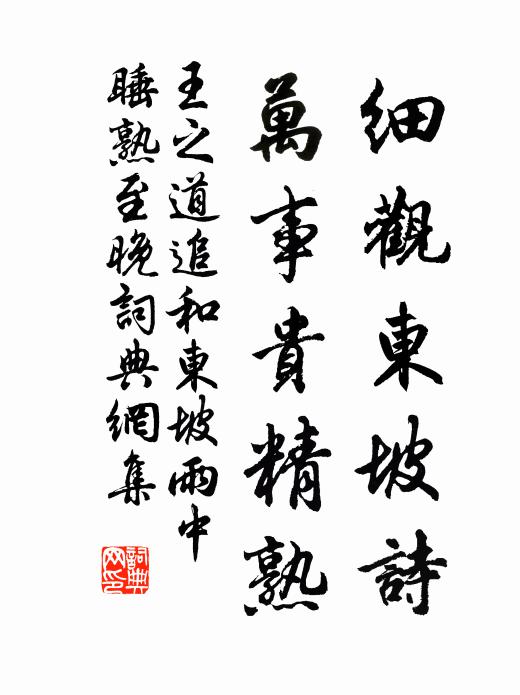 細觀東坡詩
萬事貴精熟
王之道追和東坡雨中
睡熟至晚詞典網集
詞典網印